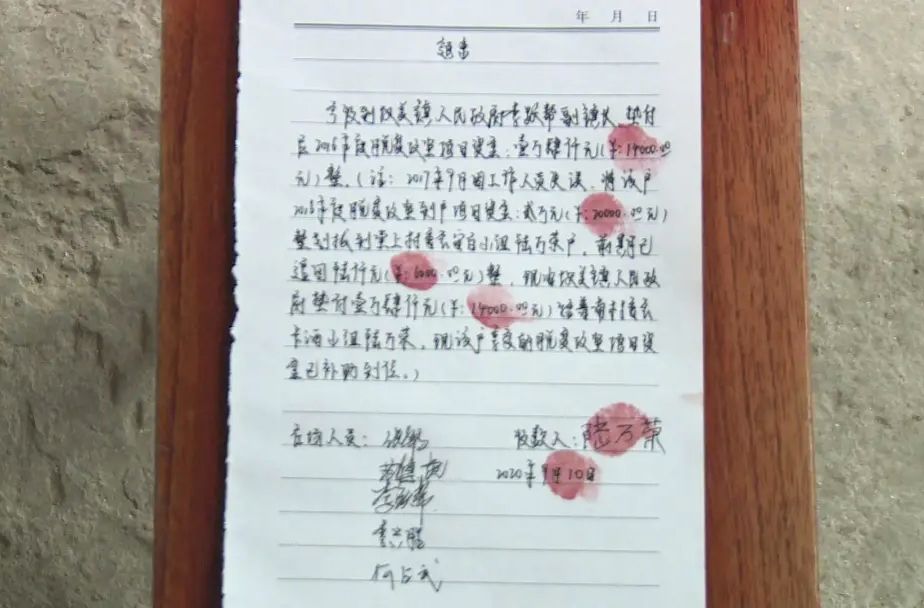 年 月 日
领条
今收到 美镇人民政府李 邦副镇长垫付
在2016年度脱贫攻坚项目资金:壹万肆仟元(¥:14000.00
元)整。(注:2017年9月因工作人员失误,将该户
2016年度脱贫攻坚到户项目资金:贰万元(¥:20000.00元)
整划拨到 上村 小组陆万荣户,前期已
追回陆仟元(¥:6000.00元)整,现由 美镇人民政
府垫付壹万肆仟元(¥:14000.00元)给 村
卡酒小组陆万荣,现该户享受的脱贫攻坚项目资
金已补助到位。)
在场人员: 收款人:陆万荣
2020年9月10日
李兴胜
何占武